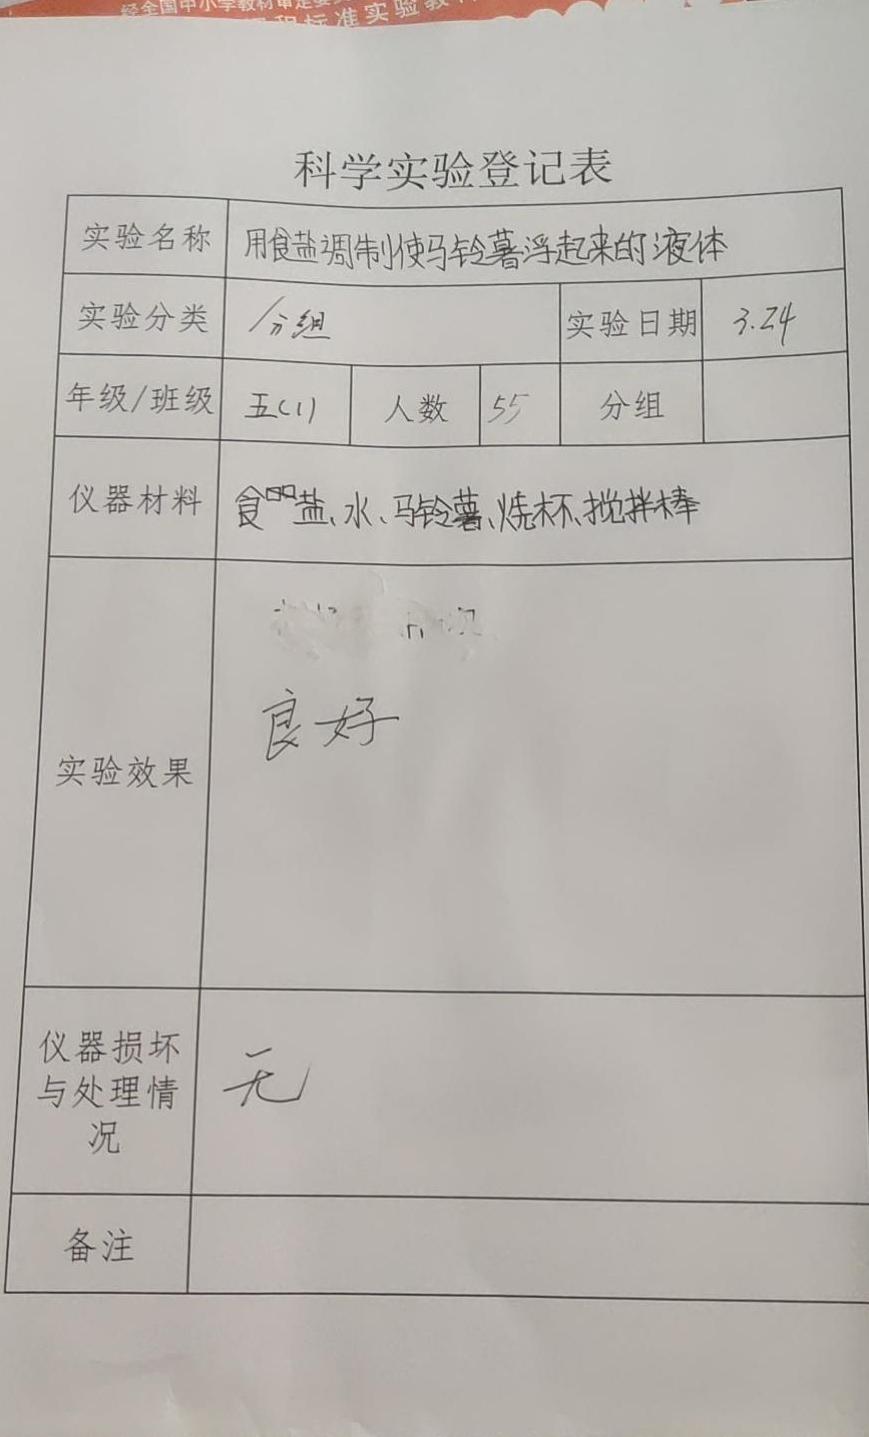 经全国中小学教材审定委
标准实验教
科学实验登记表
实验名称 用食盐调制使马铃薯浮起来的液体
实验分类 分组 实验日期 3.24
年级/班级 五(1) 人数 55 分组
仪器材料 食盐、水、马铃薯、烧杯、搅拌棒
实验效果 良好
仪器损坏
与处理情
况
无
备注